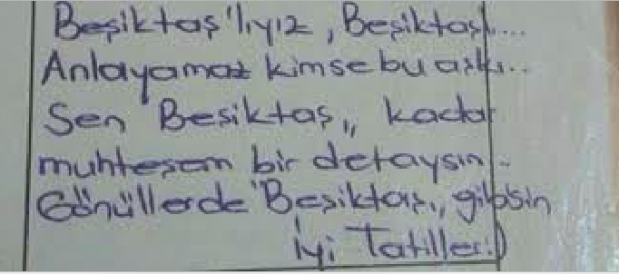 Beşiktaş'lıyız, Beşiktaşlı...
Anlayamaz kimse bu aşkı...
Sen Beşiktaş,, kadar
muhteşem bir detaysın..
Gönüllerde "Beşiktaş,, gibisin
İyi Tatiller:)